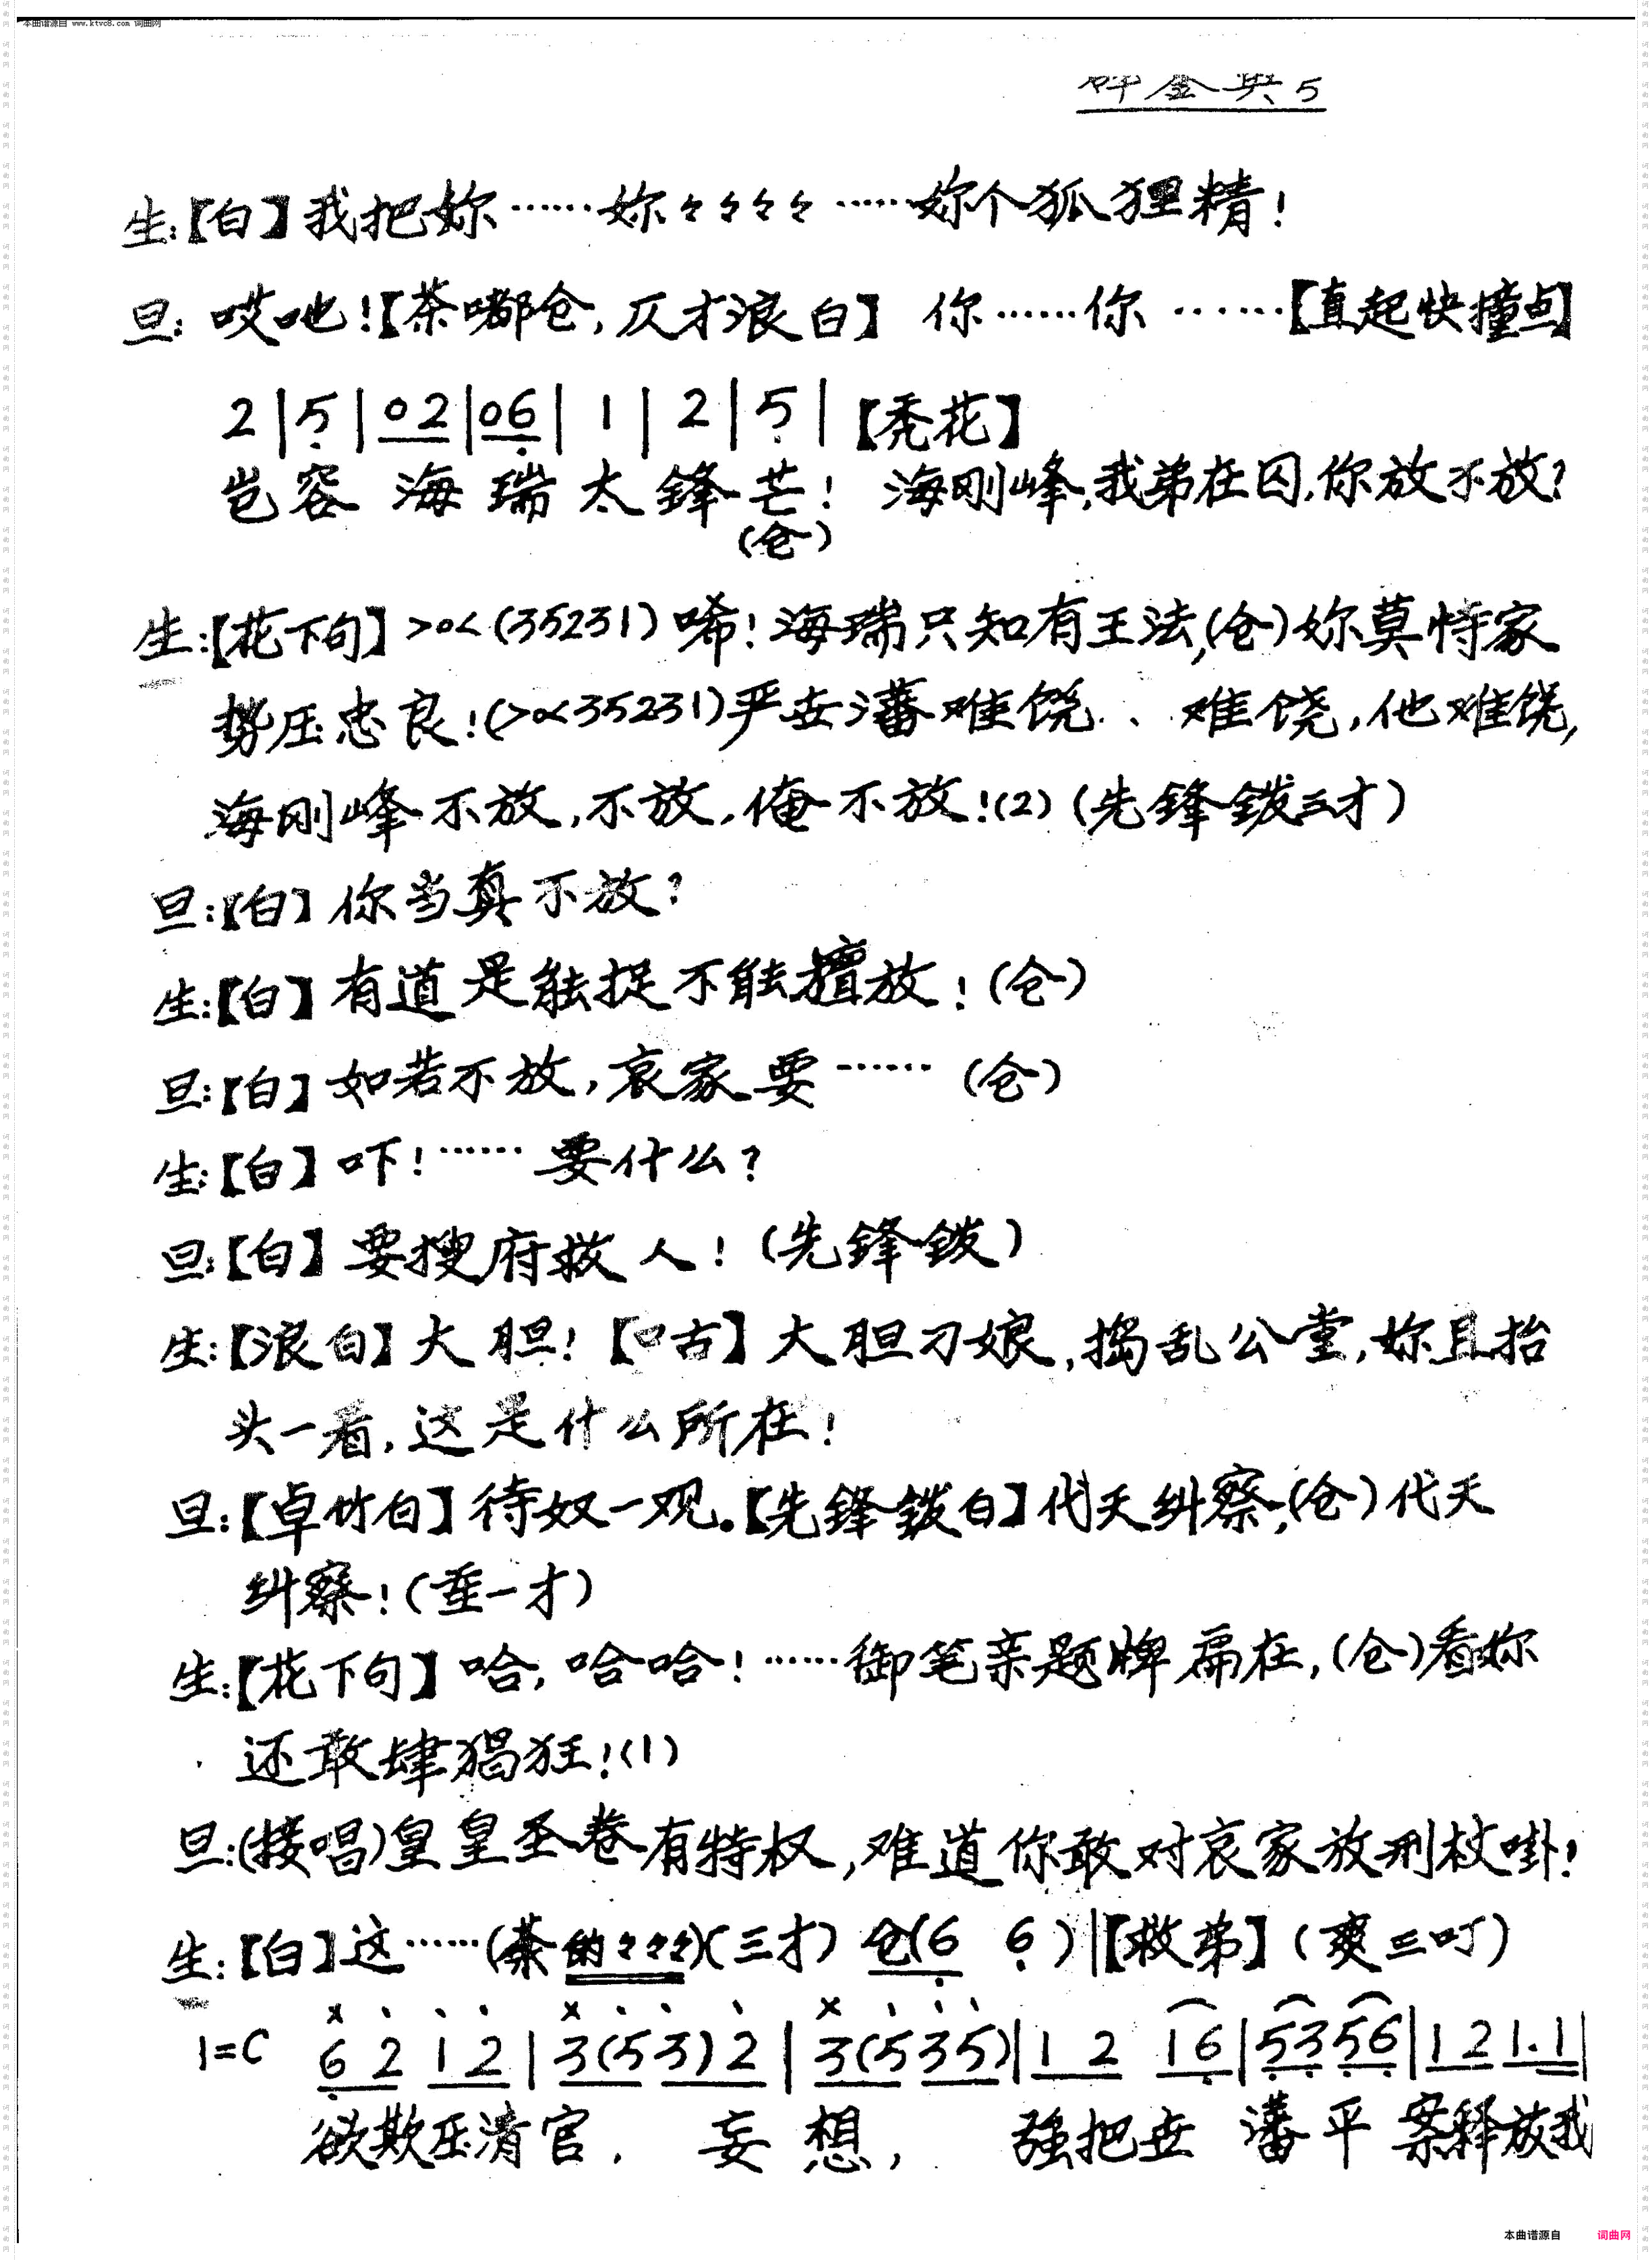 本曲谱源自 www.ktvc8.com 词曲网
碎金舆5
生:【白】我把妳……妳々々々々……妳个狐狸精!
旦: 哎吔!【茶嘟仓,仄才浪白】你……你……【直起快撞点】
2|5|02|06|1|2|5|【秃花】
岂容 海瑞太鋒芒! 海刚峰,我弟在囚,你放不放?
(仓)
生:【花下句】>o<(35231)唏!海瑞只知有王法,(仓)妳莫恃家
势压忠良!(>o<35231)严世潘难饶、难饶,他难饶,
海刚峰不放,不放,俺不放!(2)(先鋒鈸三才)
旦:【白】你当真不放?
生:【白】有道是能捉不能擅放!(仓)
旦:【白】如若不放,哀家要……(仓)
生:【白】吓!……要什么?
旦:【白】要搜府救人!(先鋒鈸)
生:【浪白】大胆!【口古】大胆刁娘,捣乱公堂,妳且抬
头一看,这是什么所在!
旦:【卓竹白】待奴一观。【先鋒鈸白】代天纠察,(仓)代天
纠察!(重一才)
生:【花下句】哈,哈哈!……御笔亲题牌扁在,(仓)看妳
还敢肆猖狂!(1)
旦:(接唱)皇皇圣眷有特权,难道你敢对哀家放刑杖啩!
生:【白】这……(茶的々々々)(三才)仓(6 6)|【救弟】(爽三叮)
1=C 6 2 1 2|3(5 3)2|3(5 3 5)|1 2 1 6|5 3 5 6|1 2 1.1|
欲欺压清官, 妄想, 強把世潘平案释放我
本曲谱源自 词曲网